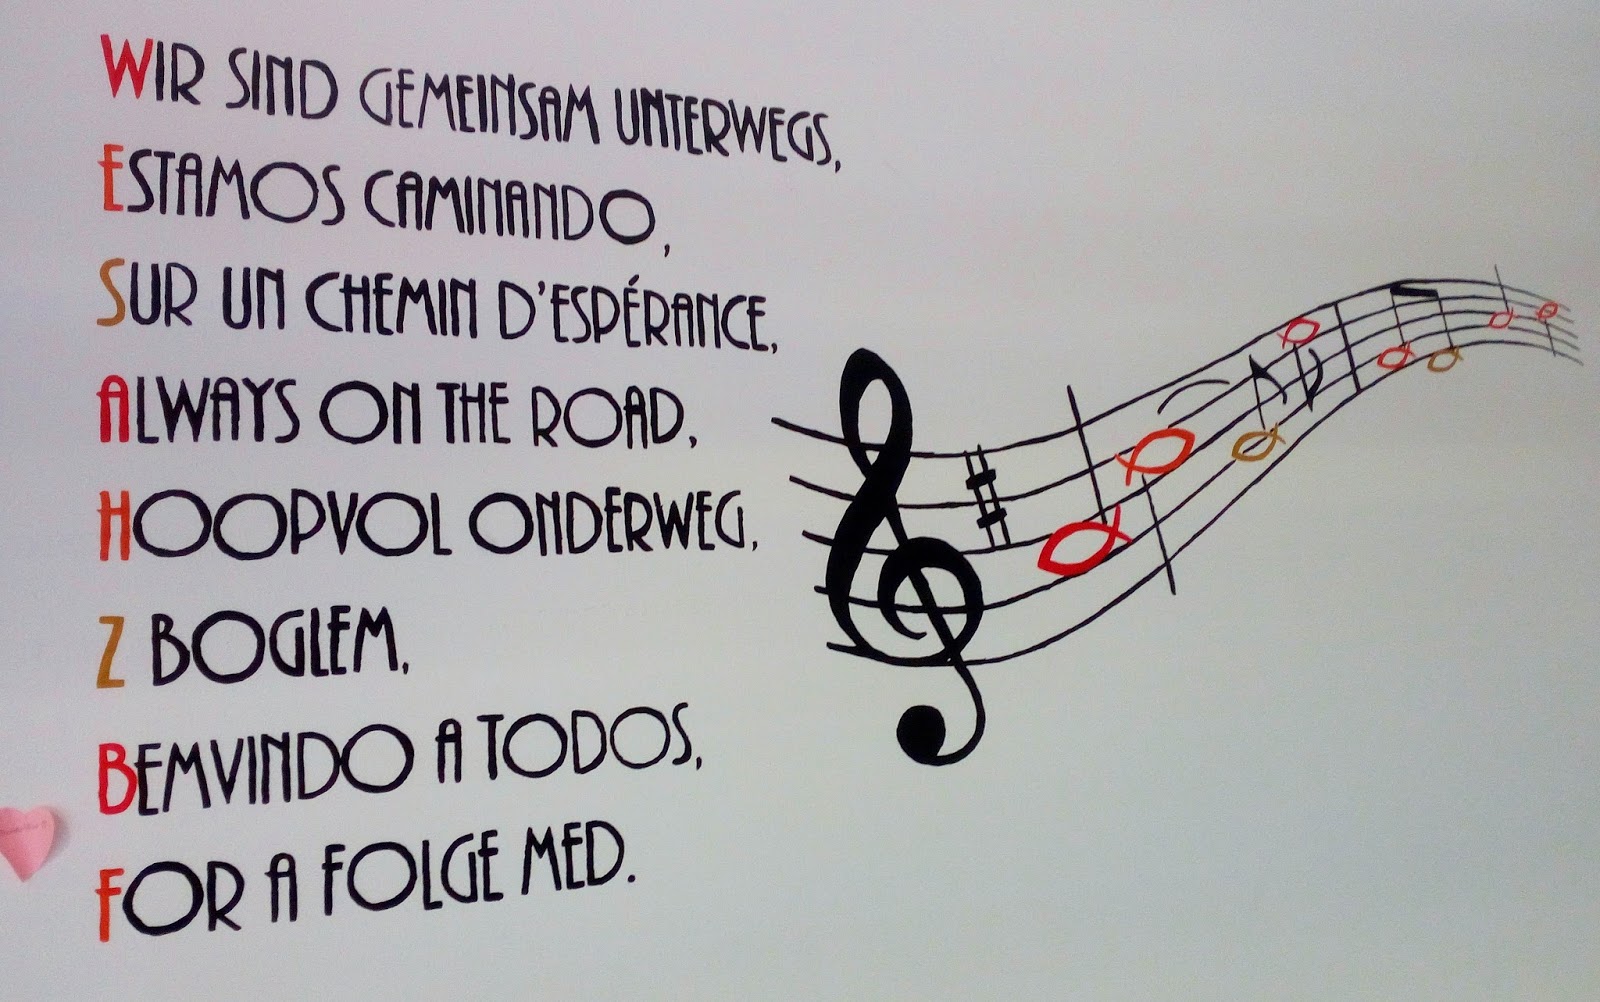 WIR SIND GEMEINSAM UNTERWEGS,
ESTAMOS CAMINANDO,
SUR UN CHEMIN D'ESPÉRANCE,
ALWAYS ON THE ROAD,
HOOPVOL ONDERWEG,
Z BOGLEM,
BEMVINDO A TODOS,
FOR A FOLGE MED.